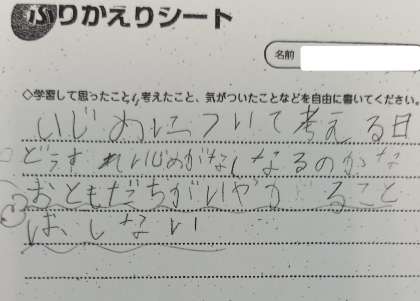 ふりかえりシート
名前
◇学習して思ったこと、考えたこと、気がついたことなどを自由に書いてください。
いじめについて考える日
どうすれいじめがなしなるのかな
おともだちがいやがることと
ば、しない